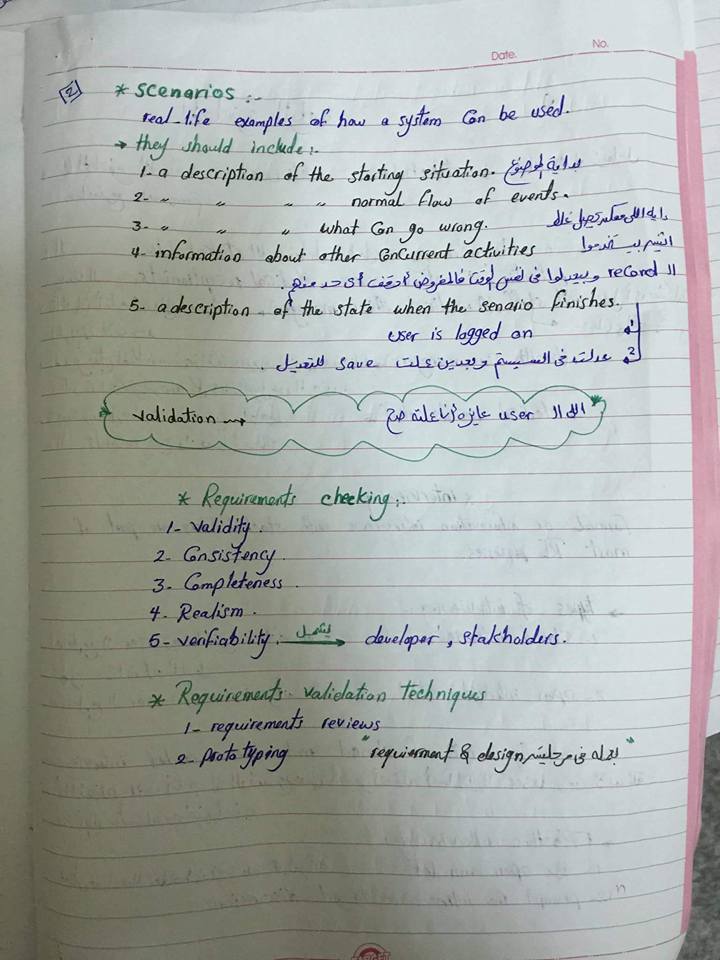 Date.
No.
2
* Scenarios :-
real-life examples of how a system can be used.
→ they should include :-
1- a description of the starting situation. بداية الموضوع
2- " " " " normal flow of events.
3- " " " what can go wrong. دايه اللى ممكن يحصل غلط
4- information about other concurrent activities
الـ record ويعدلوا فى نفس الوقت فالمفروض أوقف أى حد منهم.
5- a description of the state when the senario finishes.
1 user is logged on
2 عدلت فى السيستم وبعدين عملت save للتعديل.
validation → اللى الـ user عايزه أنا عملته صح
* Requirements checking :-
1- validity.
2- Consistency.
3- Completeness.
4- Realism.
5- verifiability : يشمل → developer, stakholders.
* Requirements validation techniques
1- requirements reviews
2- prototyping " requierment & design بعمله فى مرحلتين "